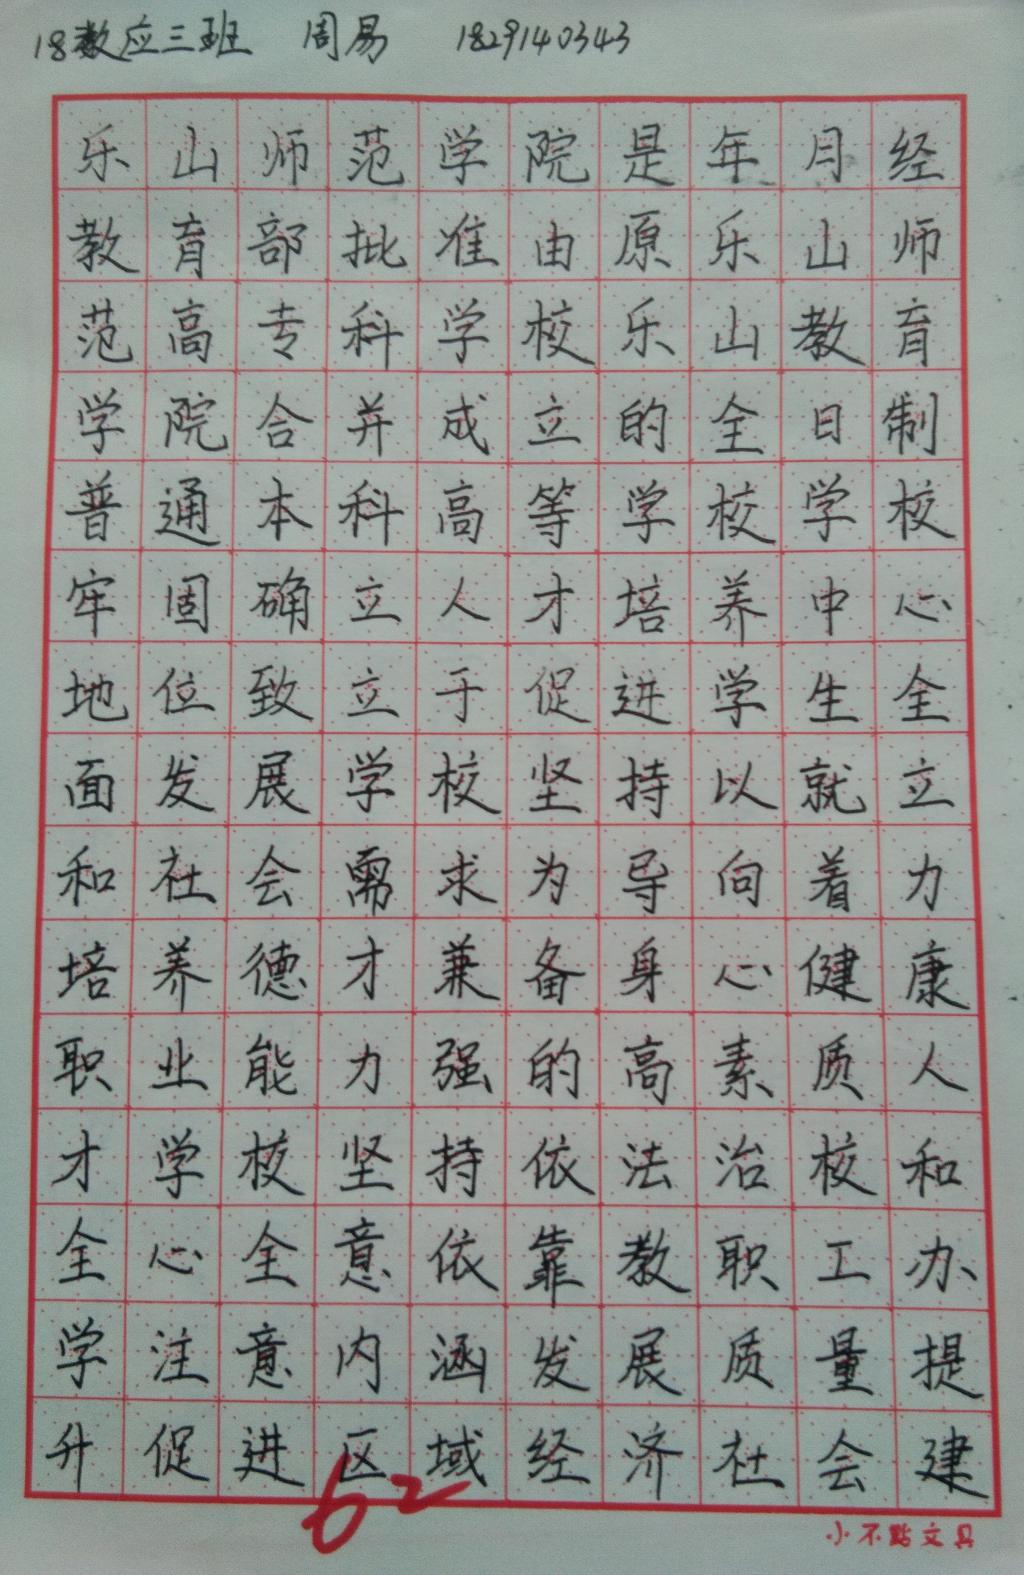 18数应三班 周易 1829140343
乐山师范学院是年月经
教育部批准由原乐山师
范高专科学校乐山教育
学院合并成立的全日制
普通本科高等学校学校
牢固确立人才培养中心
地位致立于促进学生全
面发展学校坚持以就立
和社会需求为导向着力
培养德才兼备身心健康
职业能力强的高素质人
才学校坚持依法治校和
全心全意依靠教职工办
学注意内涵发展质量提
升促进区域经济社会建
62
小不點文具